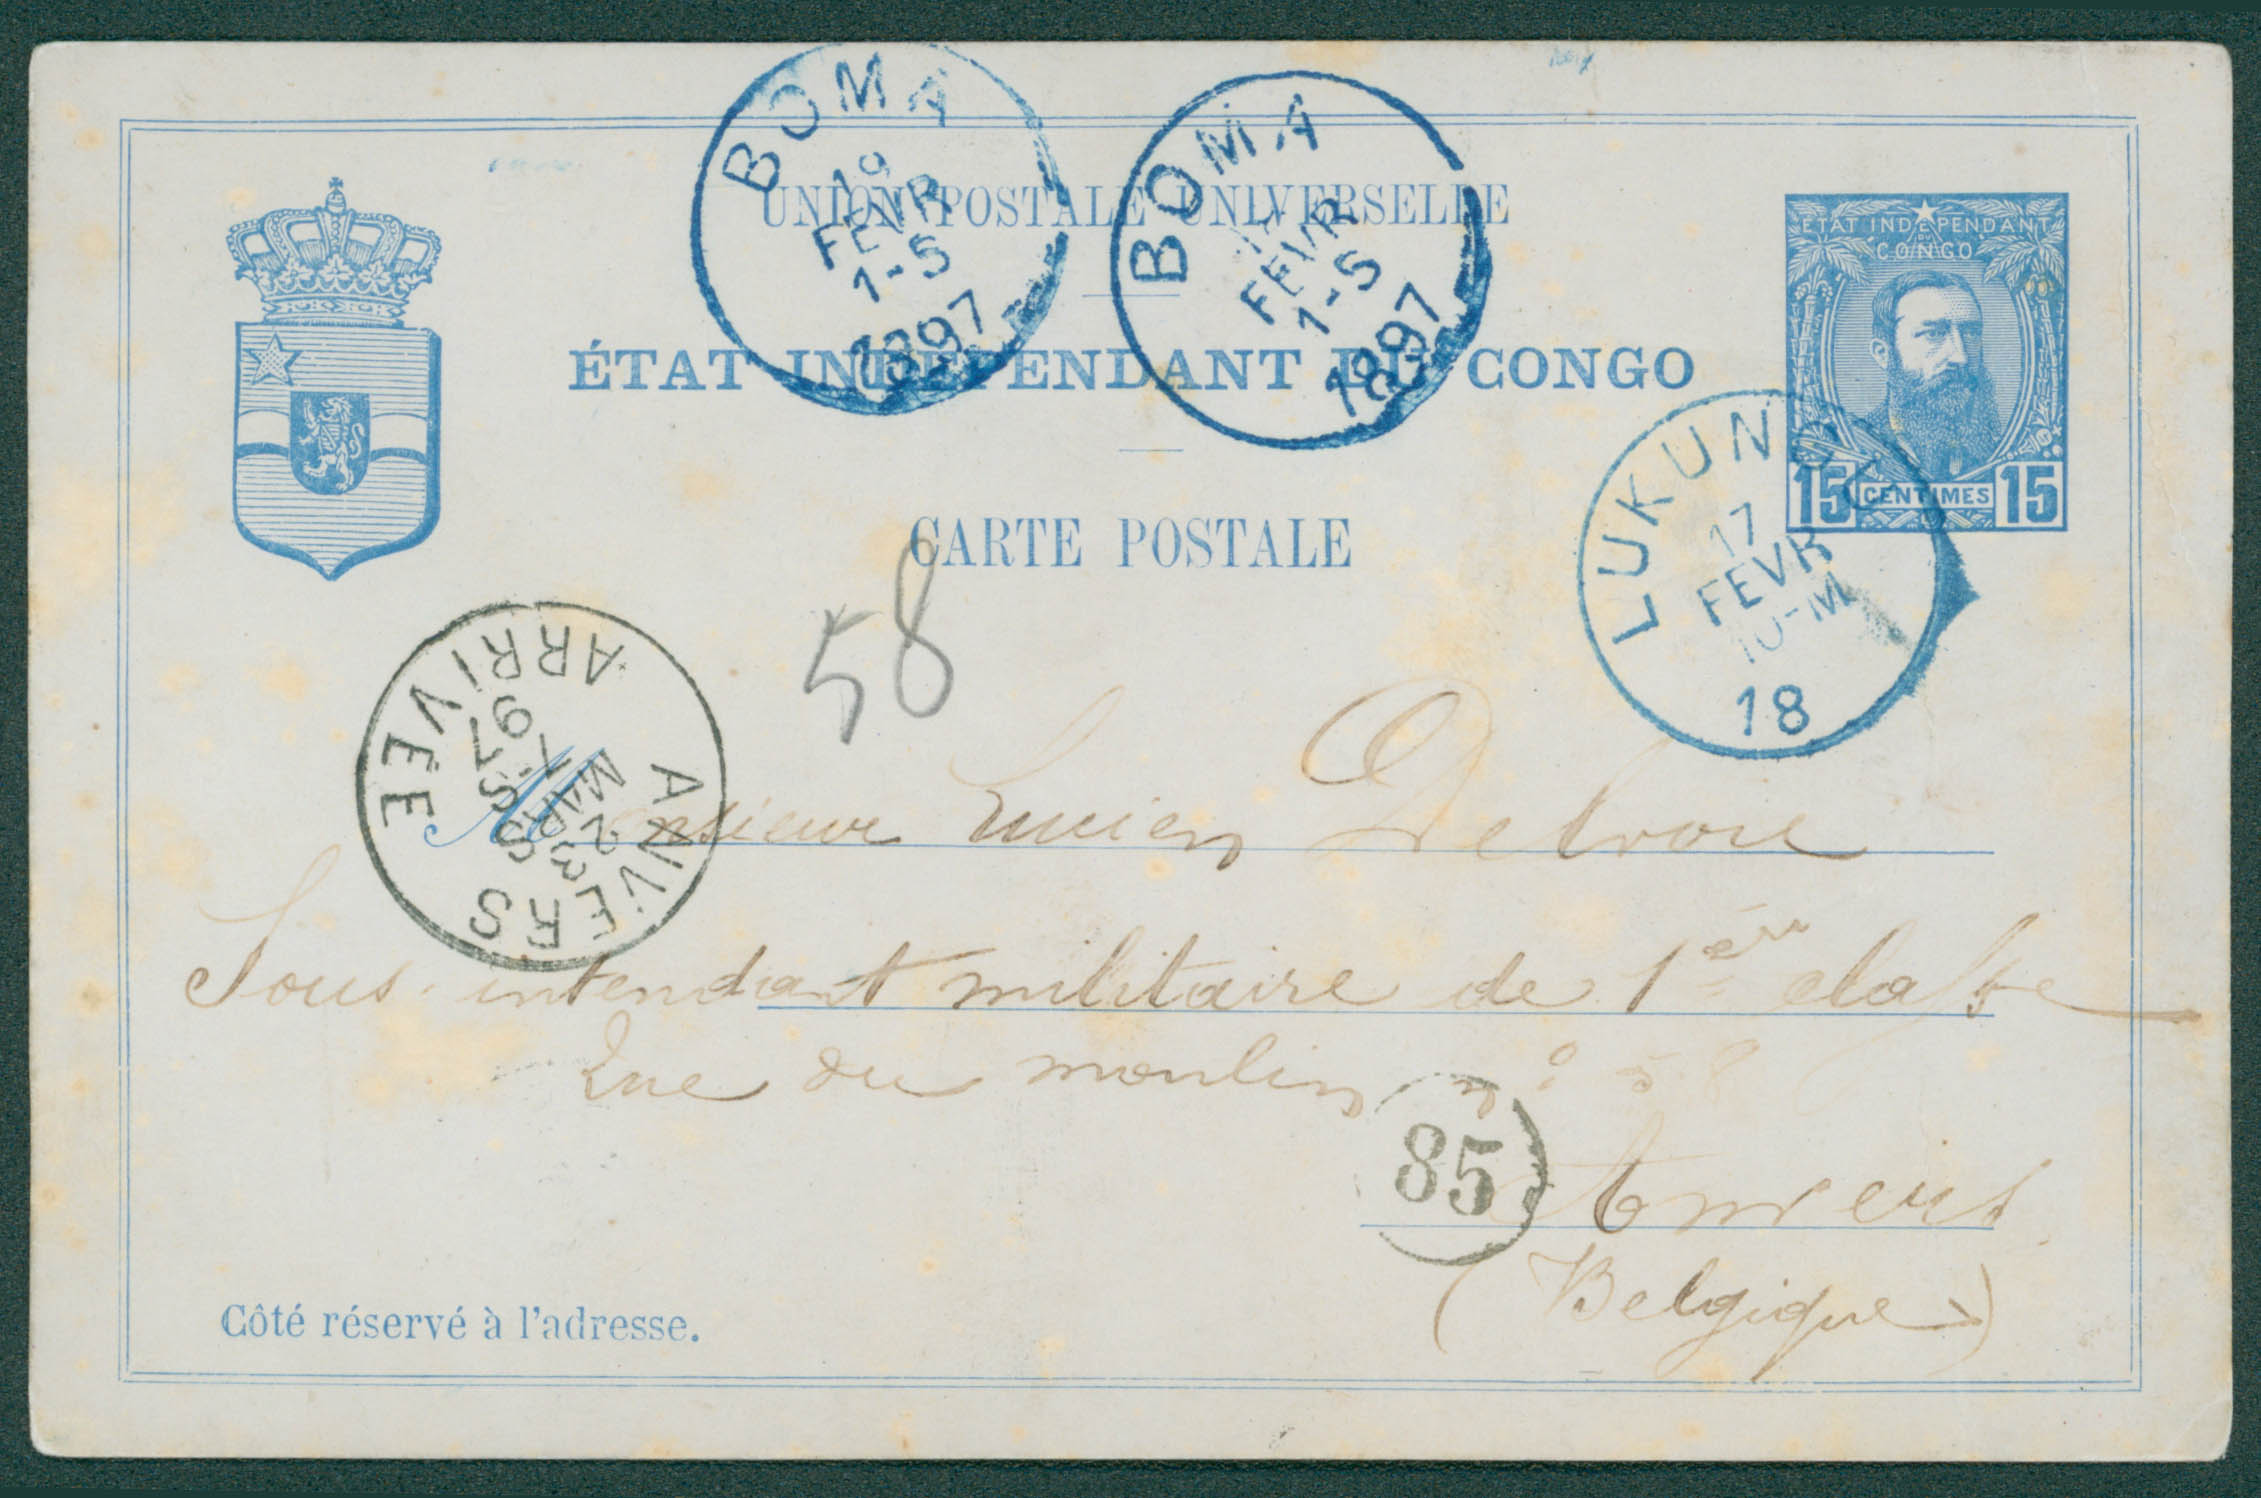 BOMA
19
FEVR
1-5
1897
BOMA
FEVR
1-5
1897
UNION POSTALE UNIVERSELLE
ÉTAT INDÉPENDANT DU CONGO
CARTE POSTALE
ETAT INDEPENDANT
DU
CONGO
15 CENTIMES 15
LUKUNGU
17
FEVR
10-M
18
58
ANVERS
23
MARS
7-S
97
ARRIVÉE
Monsieur Lucien Delvoie
Sous-intendant militaire de 1ère classe
Rue du moulin n° 58
85
Anvers
(Belgique)
Côté réservé à l'adresse.